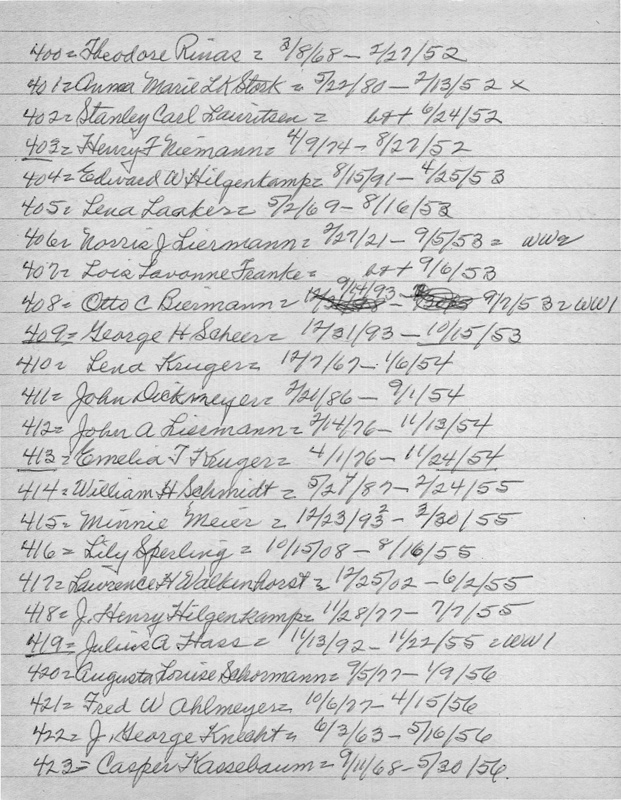 400 = Theodore Rinas = 3/8/68 - 2/27/52
401 = Anna Marie L K Stork = 5/22/80 - 2/13/52 x
402 = Stanley Carl Lauritsen = b++ 6/24/52
403 = Henry F Niemann = 4/9/74 - 8/27/52
404 = Edward W Hilgenkamp = 8/15/91 - 4/25/53
405 = Lena Laaker = 5/2/69 - 8/16/53
406 = Norris J Liermann = 2/27/21 - 9/5/53 = WW2
407 = Lois Lavonne Franke = b++ 9/6/53
408 = Otto C Biermann = 9/14/93 - 9/7/53 = WW1
409 = George H Scheer = 12/31/93 - 10/15/53
410 = Lena Kruger = 12/7/67 - 1/6/54
411 = John Dickmeyer = 2/21/86 - 9/1/54
412 = John A Liermann = 2/14/76 - 11/13/54
413 = Emelia T Kruger = 4/1/76 - 11/24/54
414 = William H Schmidt = 5/27/87 - 2/24/55
415 = Minnie Meier = 12/23/93 - 3/30/55
416 = Lily Sperling = 10/15/08 - 8/16/55
417 = Lawrence H Walkenhorst = 12/25/02 - 6/2/55
418 = J. Henry Hilgenkamp = 11/28/77 - 7/7/55
419 = Julius A Hass = 11/13/92 - 11/22/55 = WW1
420 = Augusta Louise Schormann = 9/5/77 - 1/9/56
421 = Fred W Ahlmeyer = 10/6/77 - 4/15/56
422 = J. George Knecht = 6/3/63 - 5/16/56
423 = Casper Kassebaum = 9/11/68 - 5/30/56.